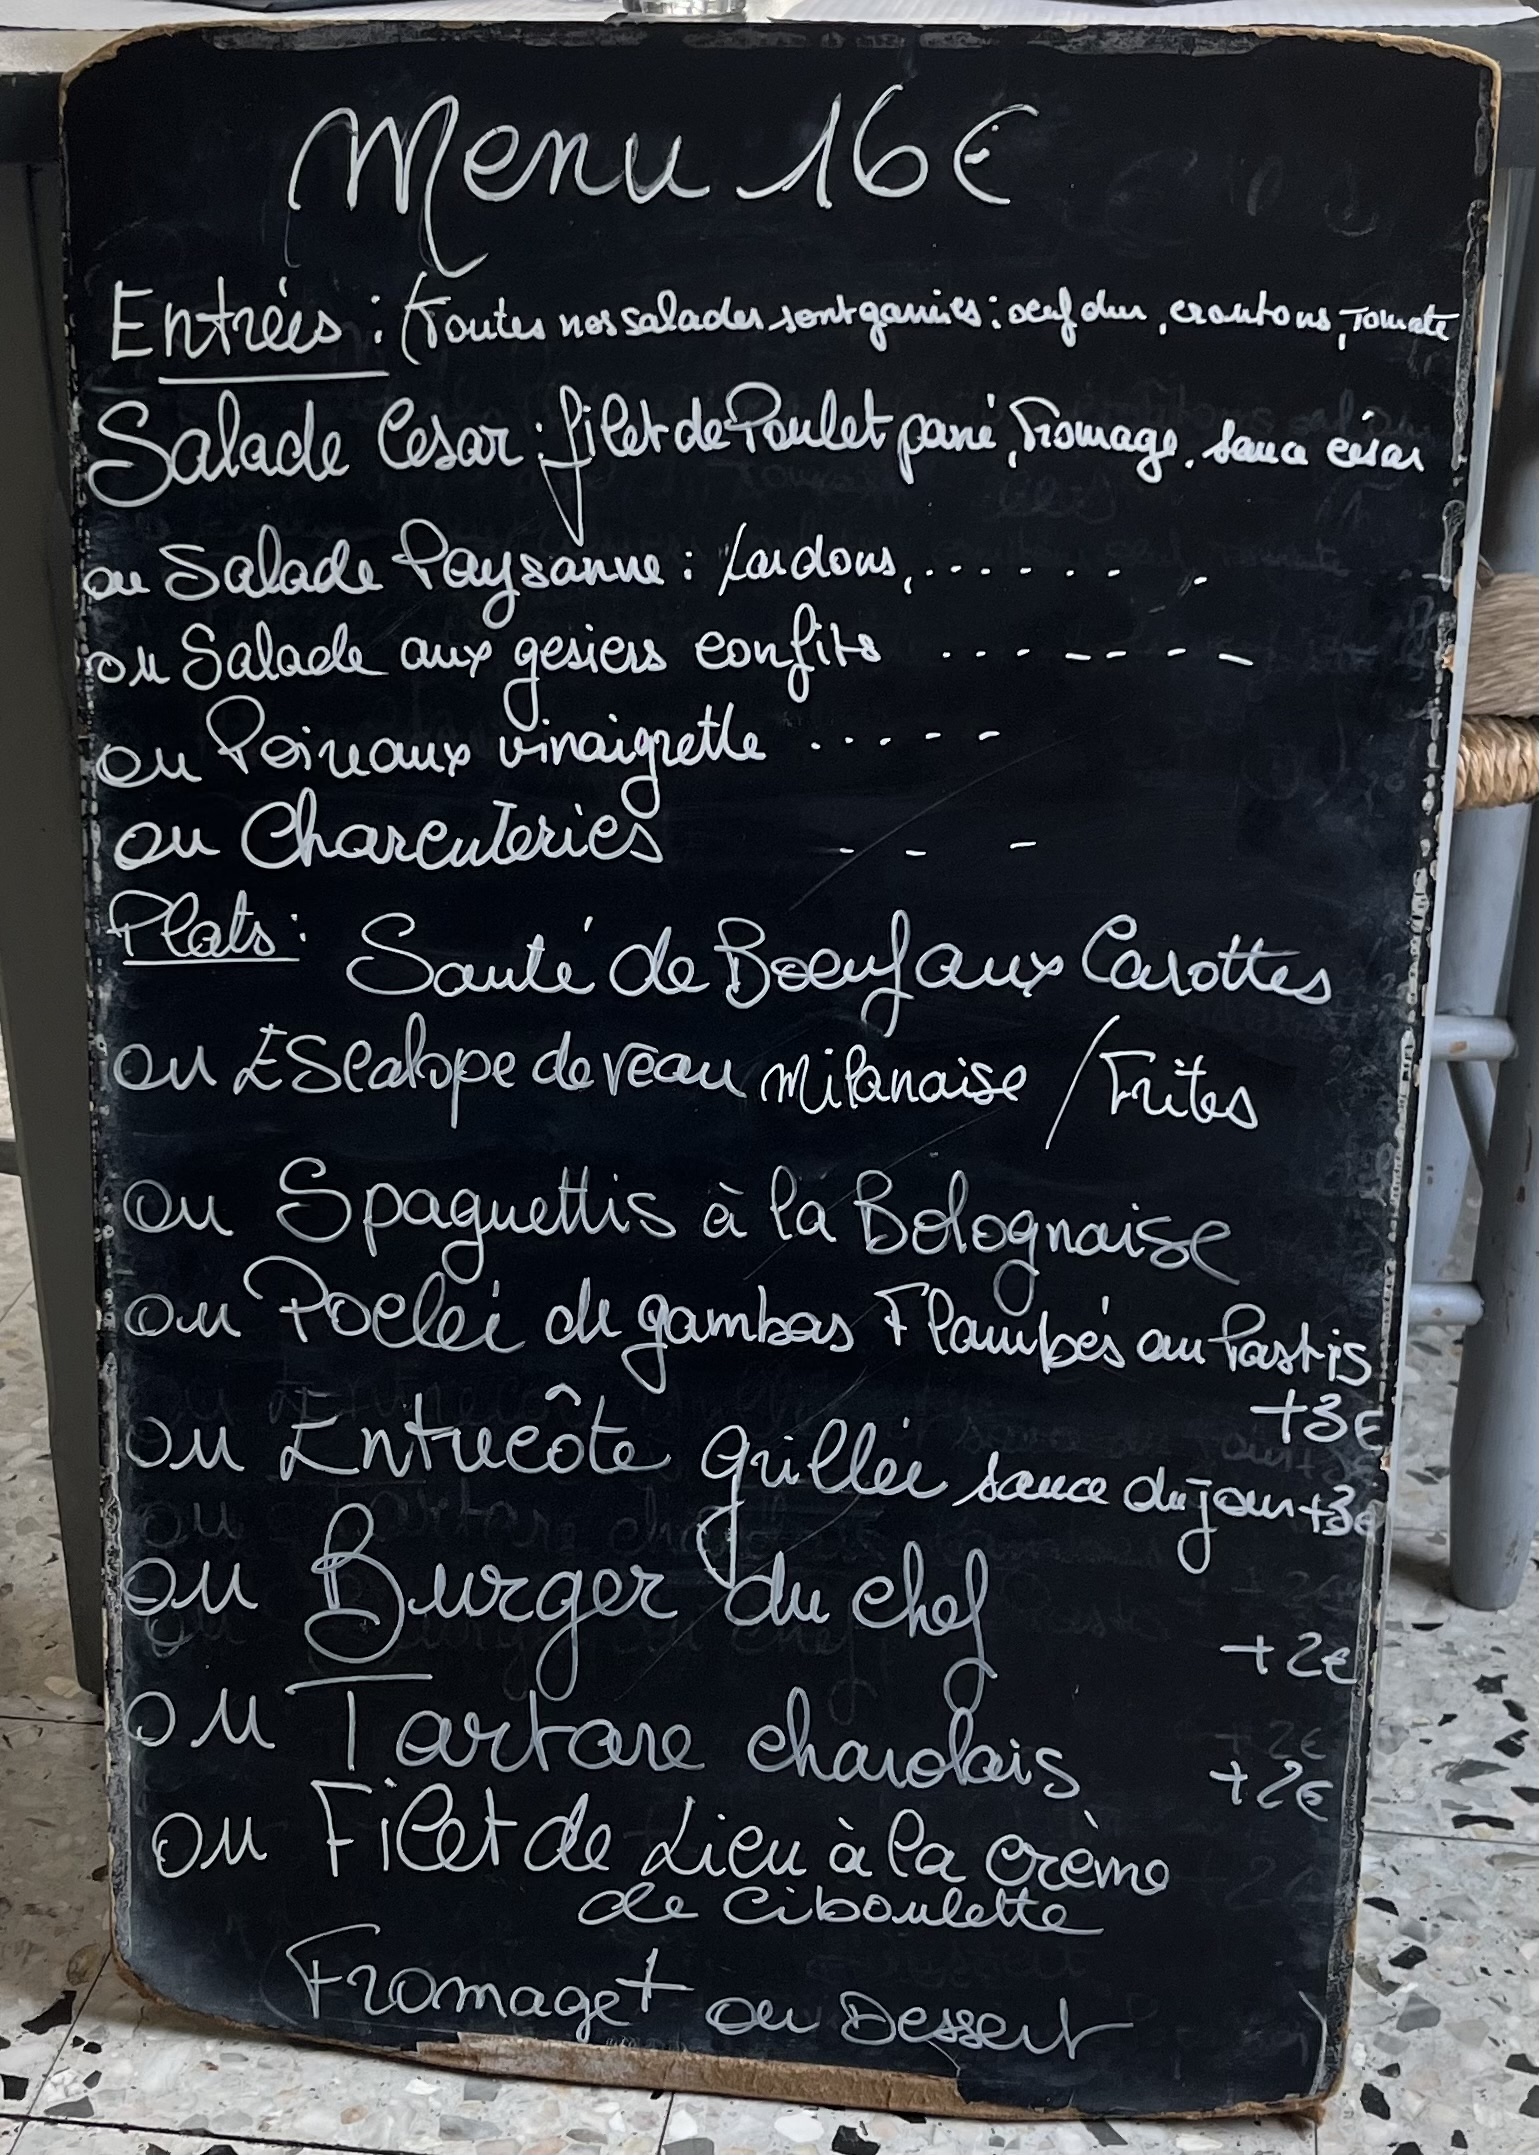 Menu 16€
Entrées : (Toutes nos salades sont garnies : oeuf dur, croutons, Tomate
Salade Cesar : filet de Poulet pané, Fromage, sauce césar
ou Salade Paysanne : Lardons, . . . . . . .
ou Salade aux gesiers confits . . . - - - -
ou Poireaux vinaigrette . . . - -
ou Charcuteries - - -
Plats : Sauté de Boeuf aux Carottes
ou Escalope de veau milanaise / Frites
ou Spaguettis à la Bolognaise
ou Poelée de gambas Flambés au Pastis
+3€
ou Entrecôte grillée sauce du jour +3€
ou Burger du chef
+2€
ou Tartare charolais +2€
ou Filet de Lieu à la crème
de Ciboulette
Fromage + ou Dessert